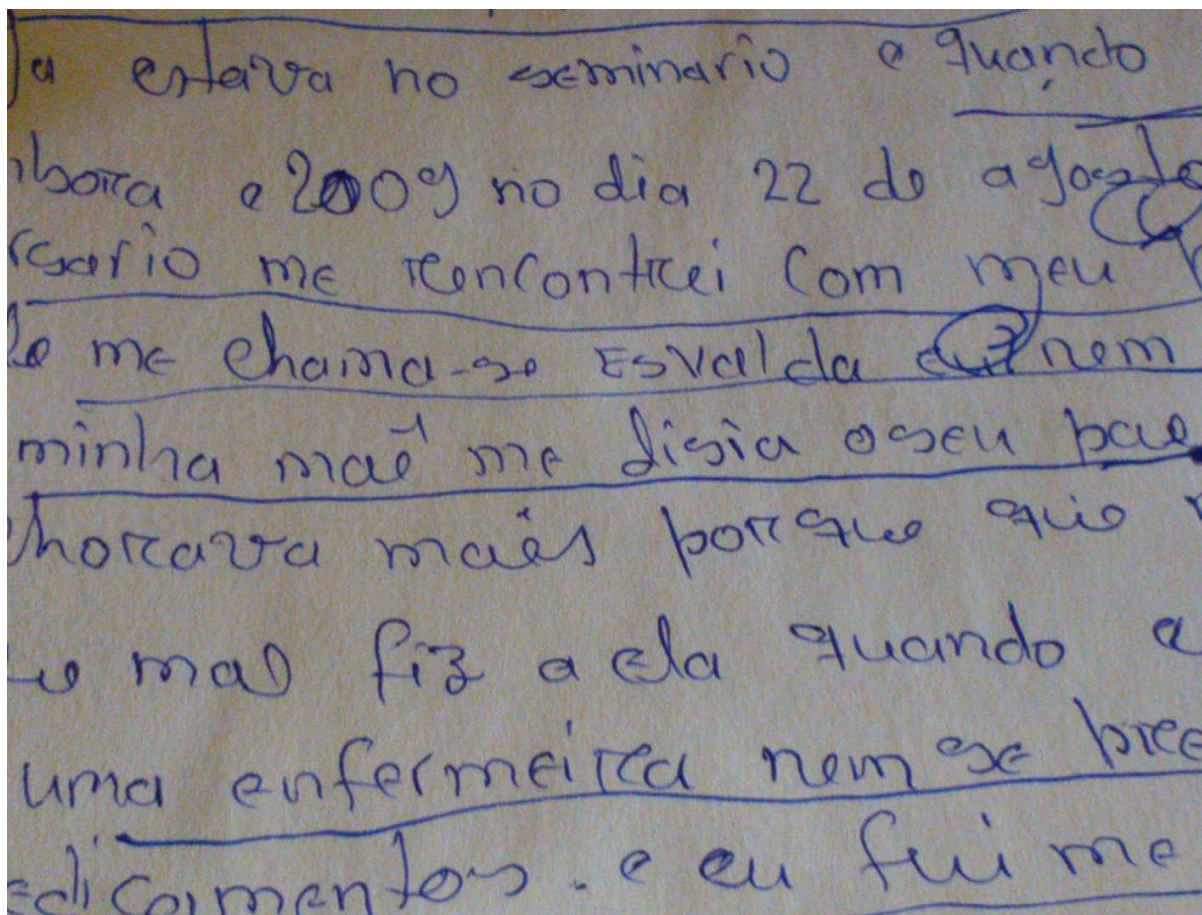 Ja estava no seminario e quando
bora e 2009 no dia 22 de agosto
rsario me rencontrei com meu
me chama-se Esvalda nem
minha maē me disia o seu pae
horava maēs porque que
mal fiz a ela quando e
uma enfermeira nem se pree
edicamentos. e eu fui me